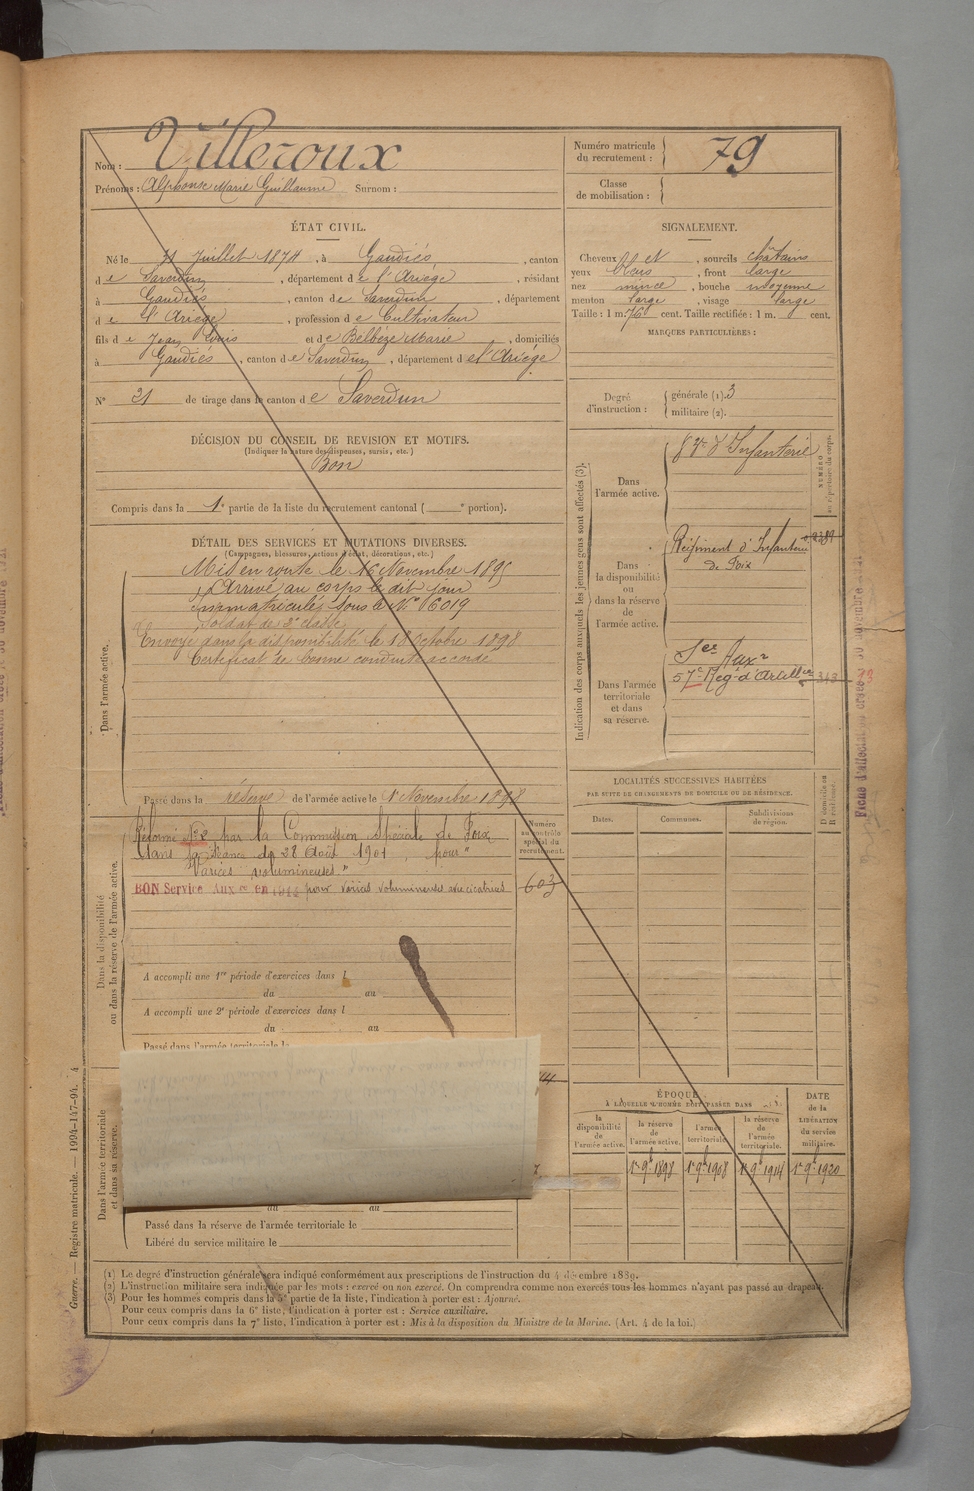 Nom : Villeroux
Prénoms : Alphonse Marie Guillaume Surnom :
Numéro matricule du recrutement : 79
Classe de mobilisation :
ÉTAT CIVIL.
Né le 31 Juillet 1874, à Gaudiès, canton
de Saverdun, département de l'Ariège, résidant
à Gaudiès, canton de Saverdun, département
de l'Ariège, profession de Cultivateur
fils de Jean Louis et de Belbèze Marie, domiciliés
à Gaudiès, canton de Saverdun, département de l'Ariège
N° 21 de tirage dans le canton de Saverdun
SIGNALEMENT.
Cheveux et, sourcils châtains
yeux bleus, front large
nez mince, bouche moyenne
menton large, visage large
Taille : 1 m. 76 cent. Taille rectifiée : 1 m. cent.
MARQUES PARTICULIÈRES :
Degré d'instruction : générale (1). 3
militaire (2).
DÉCISION DU CONSEIL DE REVISION ET MOTIFS.
(Indiquer la nature des dispenses, sursis, etc.)
Bon
Compris dans la 1e partie de la liste du recrutement cantonal ( e portion).
DÉTAIL DES SERVICES ET MUTATIONS DIVERSES.
(Campagnes, blessures, actions d'éclat, décorations, etc.)
Dans l'armée active.
Mis en route le 16 Novembre 1895
Arrivé au corps le dit jour
Immatriculé sous le N° 16019
Soldat de 2e classe
Envoyé dans la disponibilité le 18 Octobre 1898
Certificat de bonne conduite accordé
Passé dans la réserve de l'armée active le 1 Novembre 1898
Indication des corps auxquels les jeunes gens sont affectés (3).
NUMÉRO au répertoire du corps.
Dans l'armée active.
d'Infanterie
Dans la disponibilité ou dans la réserve de l'armée active.
Régiment d'Infanterie
de Foix
Dans l'armée territoriale et dans sa réserve.
Sce Auxre
57e Reg d'Artillie 343
Dans la disponibilité ou dans la réserve de l'armée active.
Numéro au contrôle spécial du recrutement.
Réformé N°2 par la Commission Spéciale de Foix
dans sa séance du 28 Août 1901, pour "
Varices volumineuses "
BON Service Auxre en pour varices volumineuses avec cicatrices
603
A accompli une 1re période d'exercices dans l
du au
A accompli une 2e période d'exercices dans l
du au
Passé dans l'armée territoriale le
LOCALITÉS SUCCESSIVES HABITÉES
PAR SUITE DE CHANGEMENTS DE DOMICILE OU DE RÉSIDENCE.
Dates. Communes. Subdivisions de région. D domicile ou R résidence.
ÉPOQUE
À LAQUELLE L'HOMME DOIT PASSER DANS
la disponibilité de l'armée active. la réserve de l'armée active. l'armée territoriale. la réserve de l'armée territoriale.
DATE de la LIBÉRATION du service militaire.
1er 9bre 1898 1er 9bre 1908 1er 9bre 1914 1er 9bre 1920
Dans l'armée territoriale et dans sa réserve.
du au
Passé dans la réserve de l'armée territoriale le
Libéré du service militaire le
(1) Le degré d'instruction générale sera indiqué conformément aux prescriptions de l'instruction du 4 décembre 1889.
(2) L'instruction militaire sera indiquée par les mots : exercé ou non exercé. On comprend comme non exercés tous les hommes n'ayant pas passé au drapeau.
(3) Pour les hommes compris dans la 5e partie de la liste, l'indication à porter est : Ajourné.
Pour ceux compris dans la 6e liste, l'indication à porter est : Service auxiliaire.
Pour ceux compris dans la 7e liste, l'indication à porter est : Mis à la disposition du Ministre de la Marine. (Art. 4 de la loi.)
Guerre. — Registre matricule. — 1994-147-94.